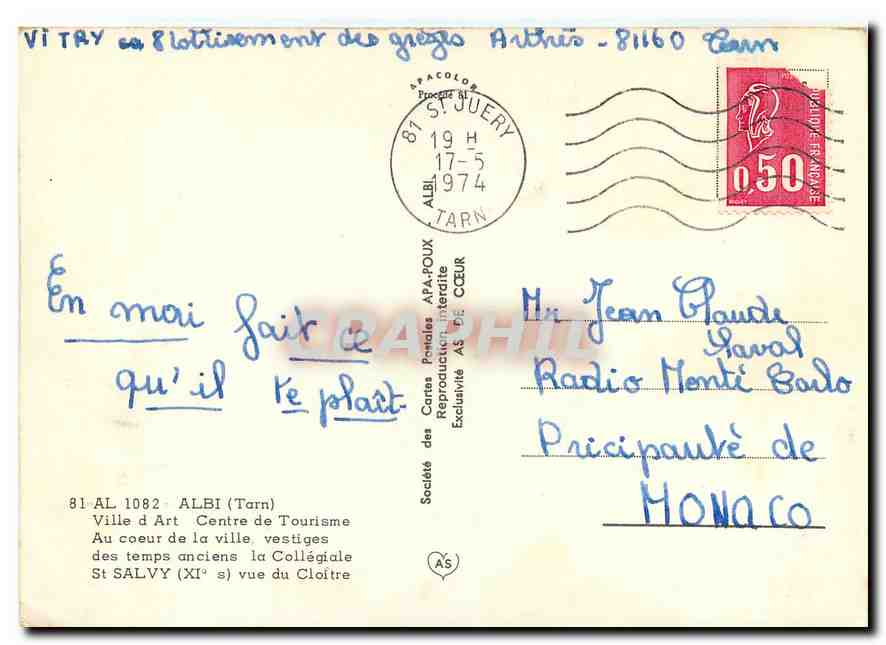 VITRY 8 lottissement des grèzes Arthès - 81160 Tarn
APACOLOR
Procédé 81
81 ST JUERY
19 H
17-5
1974
TARN
RÉPUBLIQUE FRANÇAISE
0,50
En mai fait ce
qu'il te plaît.
Mr Jean Claude
Laval
Radio Monté Carlo
Pricipauté de
MONACO
Société des Cartes Postales APA-POUX ALBI
Reproduction interdite
Exclusivité AS DE CŒUR
CPAPHIL
81 AL 1082 - ALBI (Tarn)
Ville d Art Centre de Tourisme
Au coeur de la ville, vestiges
des temps anciens la Collégiale
St SALVY (XI° s) vue du Cloître
AS